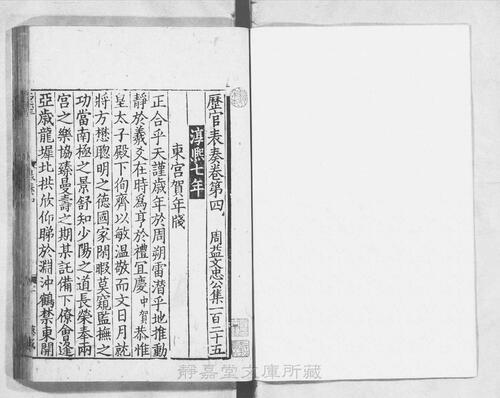 歷官表奏卷第四 周益文忠公集一百二十五
淳熙七年
東宮賀年牋
正合乎天謹歲年於周朔雷潛乎地推動
靜於羲爻在時爲亨於禮宜慶中賀恭惟
皇太子殿下徇齊以敏溫敬而文日月就
將方懋聰明之德國家閒暇莫窺監撫之
功當南極之景舒知少陽之道長榮奉兩
宮之樂協臻曼壽之期某託備下僚會逢
亞歲龍墀北拱欣仰睇於淵沖鶴禁東開
靜嘉堂文庫所藏